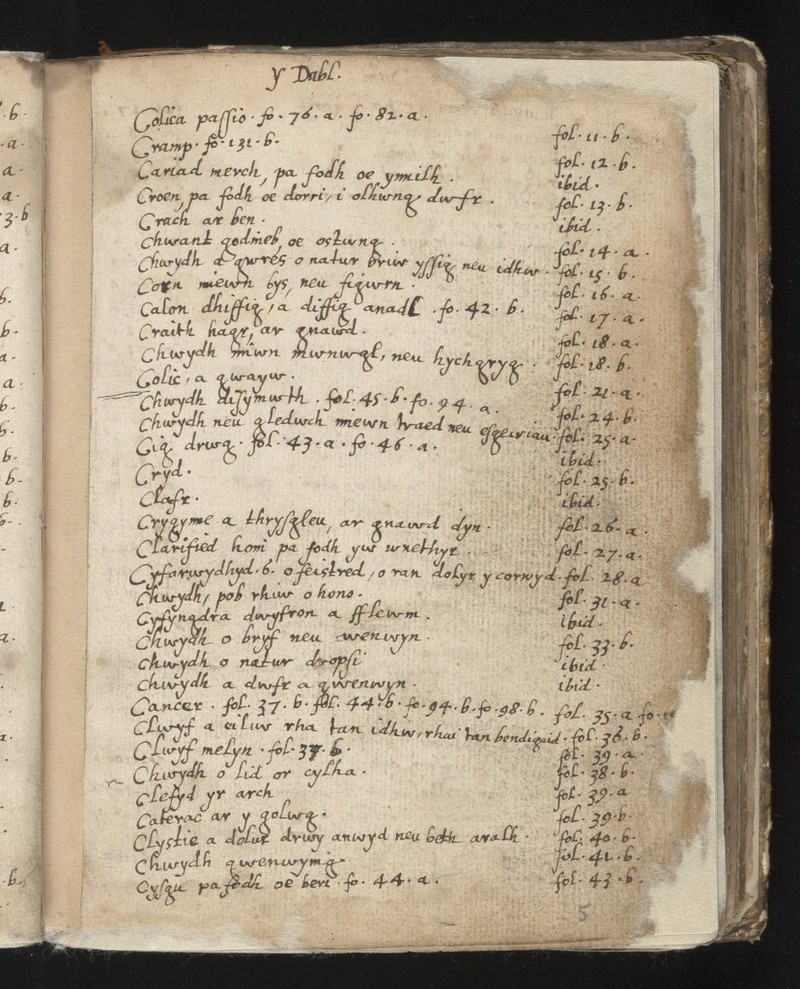 y Dabl.
Colica passio. fo. 76. a. fo. 82. a. fol. 11. b.
Cramp. fo. 131. b. fol. 12. b.
Cariad merch, pa fodh oe ynnilh. ibid.
Croen, pa fodh oe dorri, i olhwng dwfr. fol. 13. b.
Crach ar ben. ibid.
Chwant godineb, oe ostwng. fol. 14. a.
Chwydh a gwres o natur briw yssig neu idhw. fol. 15. b.
Corn mewn bys, neu figwrn. fol. 16. a.
Calon dhiffig, a diffig anadl. fo. 42. b. fol. 17. a.
Craith hagr, ar gnawd. fol. 18. a.
Chwydh mwn mwnwgl, neu hychgryg. fol. 18. b.
Colic, a gwayw. fol. 21. a.
Chwydh disymwth. fol. 45. b. fo. 94. a. fol. 24. b.
Chwydh neu gledwch mewn traed neu esgeiriau. fol. 25. a.
Cig drwg. fol. 43. a. fo. 46. a. ibid.
Cryd. fol. 25. b.
Clafr. ibid.
Crygyme a thrysgleu, ar gnawd dyn. fol. 26. a.
Clarified honi pa fodh yw wnethyr. fol. 27. a.
Cyfarwydhyd. 6. o feistred, o ran dolyr y corwyd. fol. 28. a
Chwydh, pob rhiw o hono. fol. 31. a.
Cyfyngdra dwyfron a fflewm. ibid.
Chwydh o bryf neu wenwyn. fol. 33. b.
Chwydh o natur dropsi ibid.
Chwydh a dwfr a gwenwyn. ibid.
Cancer. fol. 37. b. fol. 44. b. fo. 94. b. fo. 98. b. fol. 35. a fo.
Clwyf a eilw rha tan idhw, rhai tan bendigaid. fol. 38. b.
Clwyf melyn. fol. 37. b. fol. 39. a.
Chwydh o lid or cylha. fol. 38. b.
Clefyd yr arch fol. 39. a
Caterac ar y golwg. fol. 39. b.
Clystie a dolur drwy anwyd neu beth aralh. fol. 40. b.
Chwydh gwenwynig. fol. 41. b.
Cysgu pa fodh oe beri. fo. 44. a. fol. 43. b.
5